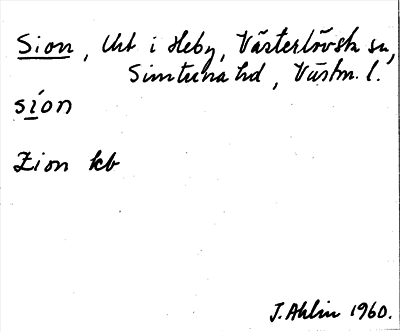 Sion, Uht i Heby, Västerlövsta sn,
Simtuna hd, Västm. l.
síon
Zion kb
J. Ahlin 1960.